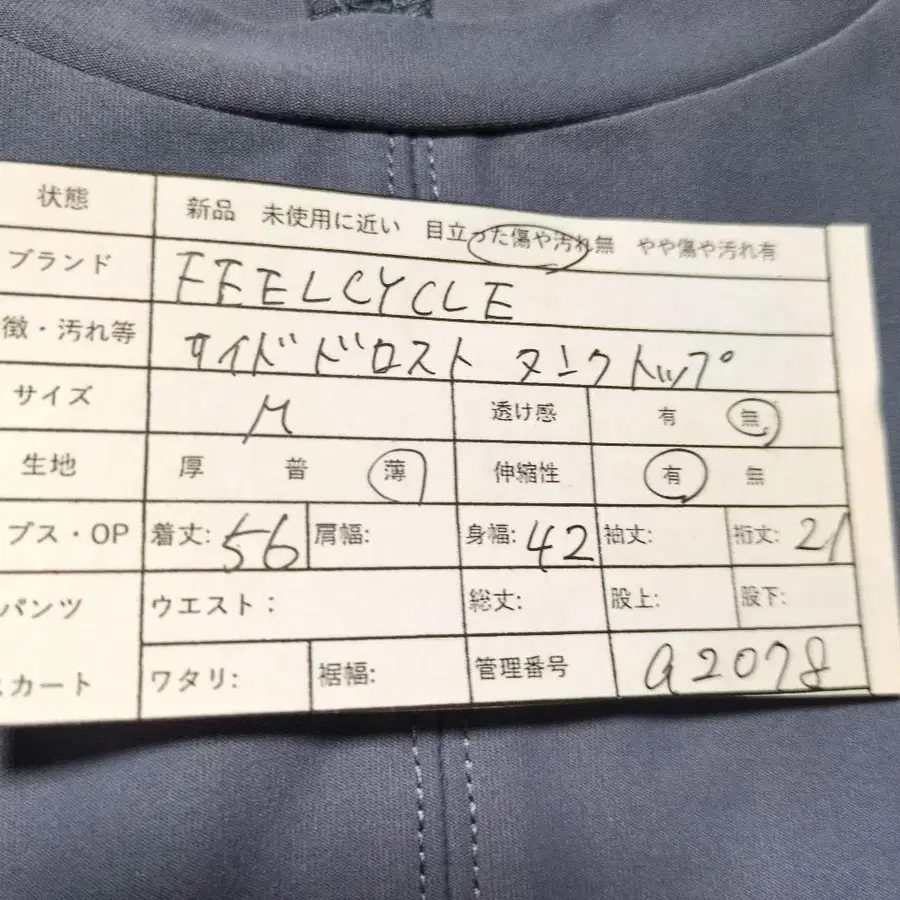 状態 新品 未使用に近い 目立った傷や汚れ無 やや傷や汚れ有
ブランド FEELCYCLE
徴・汚れ等 サイドドロスト タンクトップ
サイズ M 透け感 有 無
生地 厚 普 薄 伸縮性 有 無
プス・OP 着丈: 56 肩幅: 身幅: 42 袖丈: 裄丈: 21
パンツ ウエスト: 総丈: 股上: 股下:
カート ワタリ: 裾幅: 管理番号 a2078